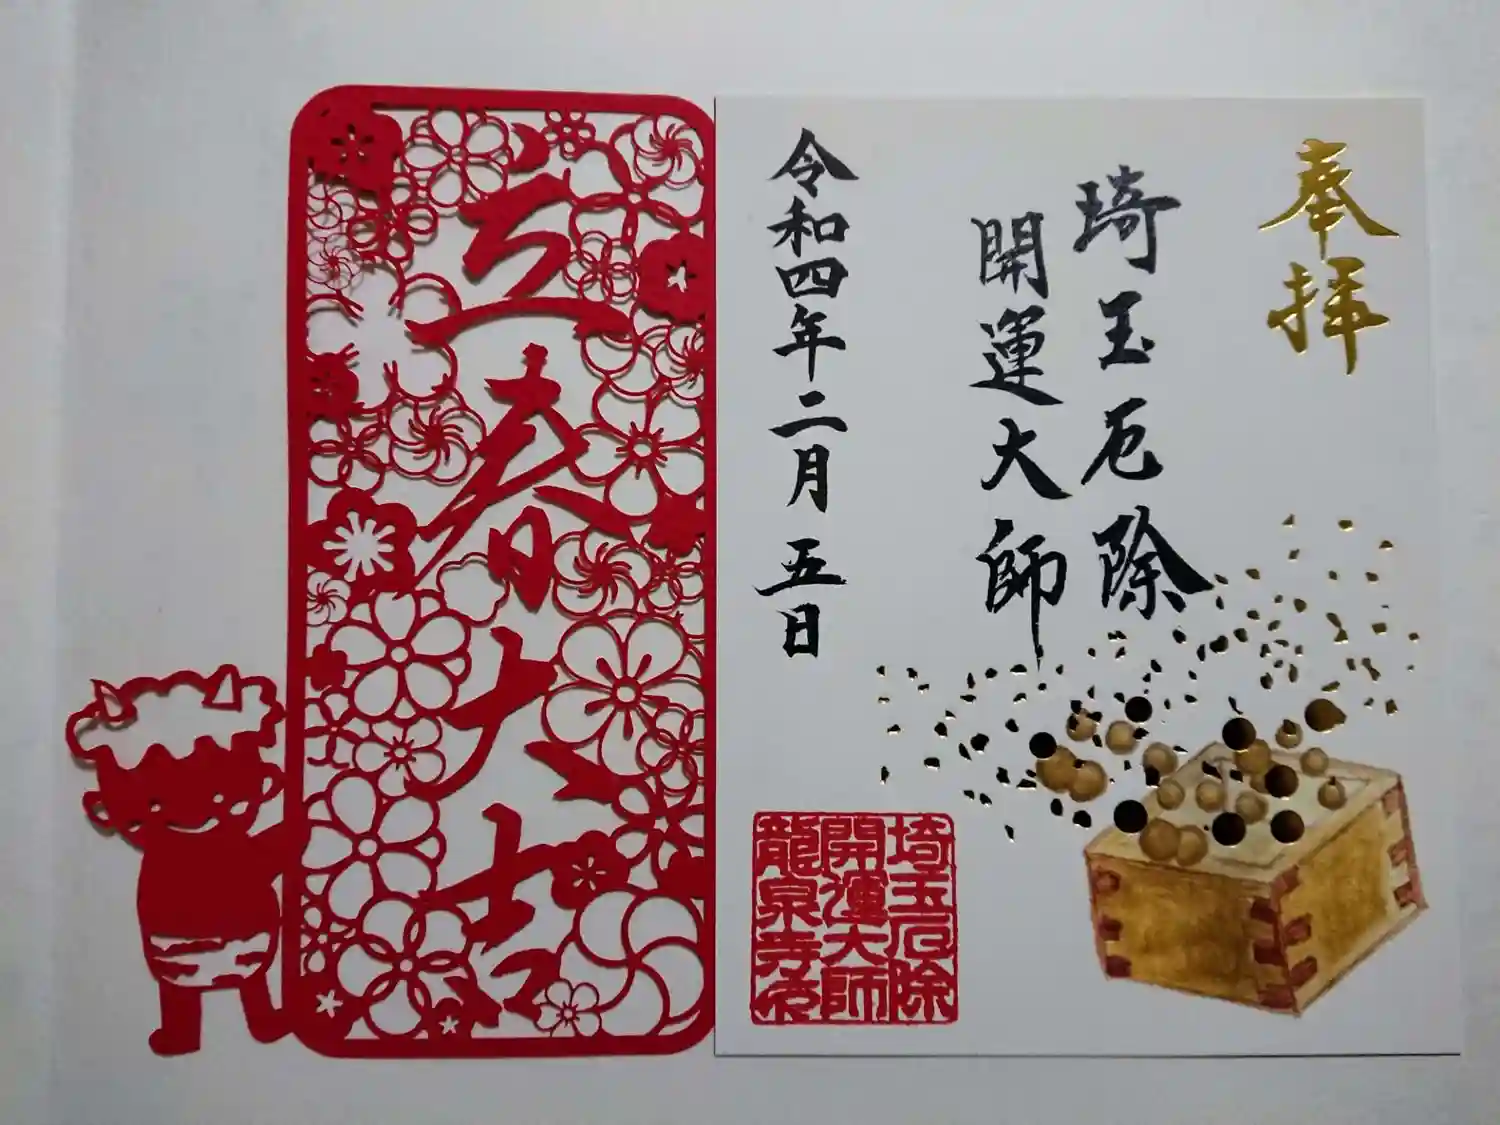 奉拝
埼玉厄除
開運大師
令和四年二月五日
埼玉厄除
開運大師
龍泉寺印
立春大吉